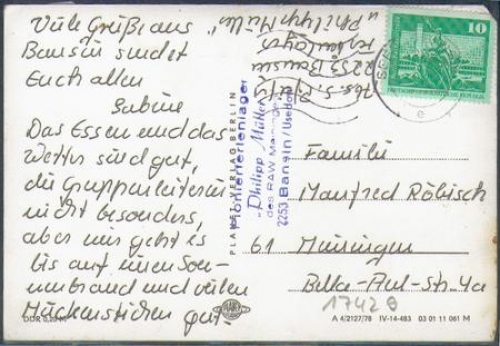 Viele Grüße aus
Bansin sendet
Euch allen
Sabine
Das Essen und das
Wetter sind gut,
die Gruppenleiterin
nicht besonders,
aber mir geht es
bis auf einen Son-
nenbrand und vielen
Mückenstichen gut.
DDR 0,20 M
PLANET-VERLAG BERLIN
Pionierferienlager
"Philipp Müller"
des RAW Meiningen
2253 Bansin/Usedom
2253 Bansin
"Philipp Müller"
10
Familie
Manfred Röbisch
61 Meiningen
Belka-Aul-Str. 4a
1742 θ
A 4/2127/78 IV-14-483 03 01 11 061 M